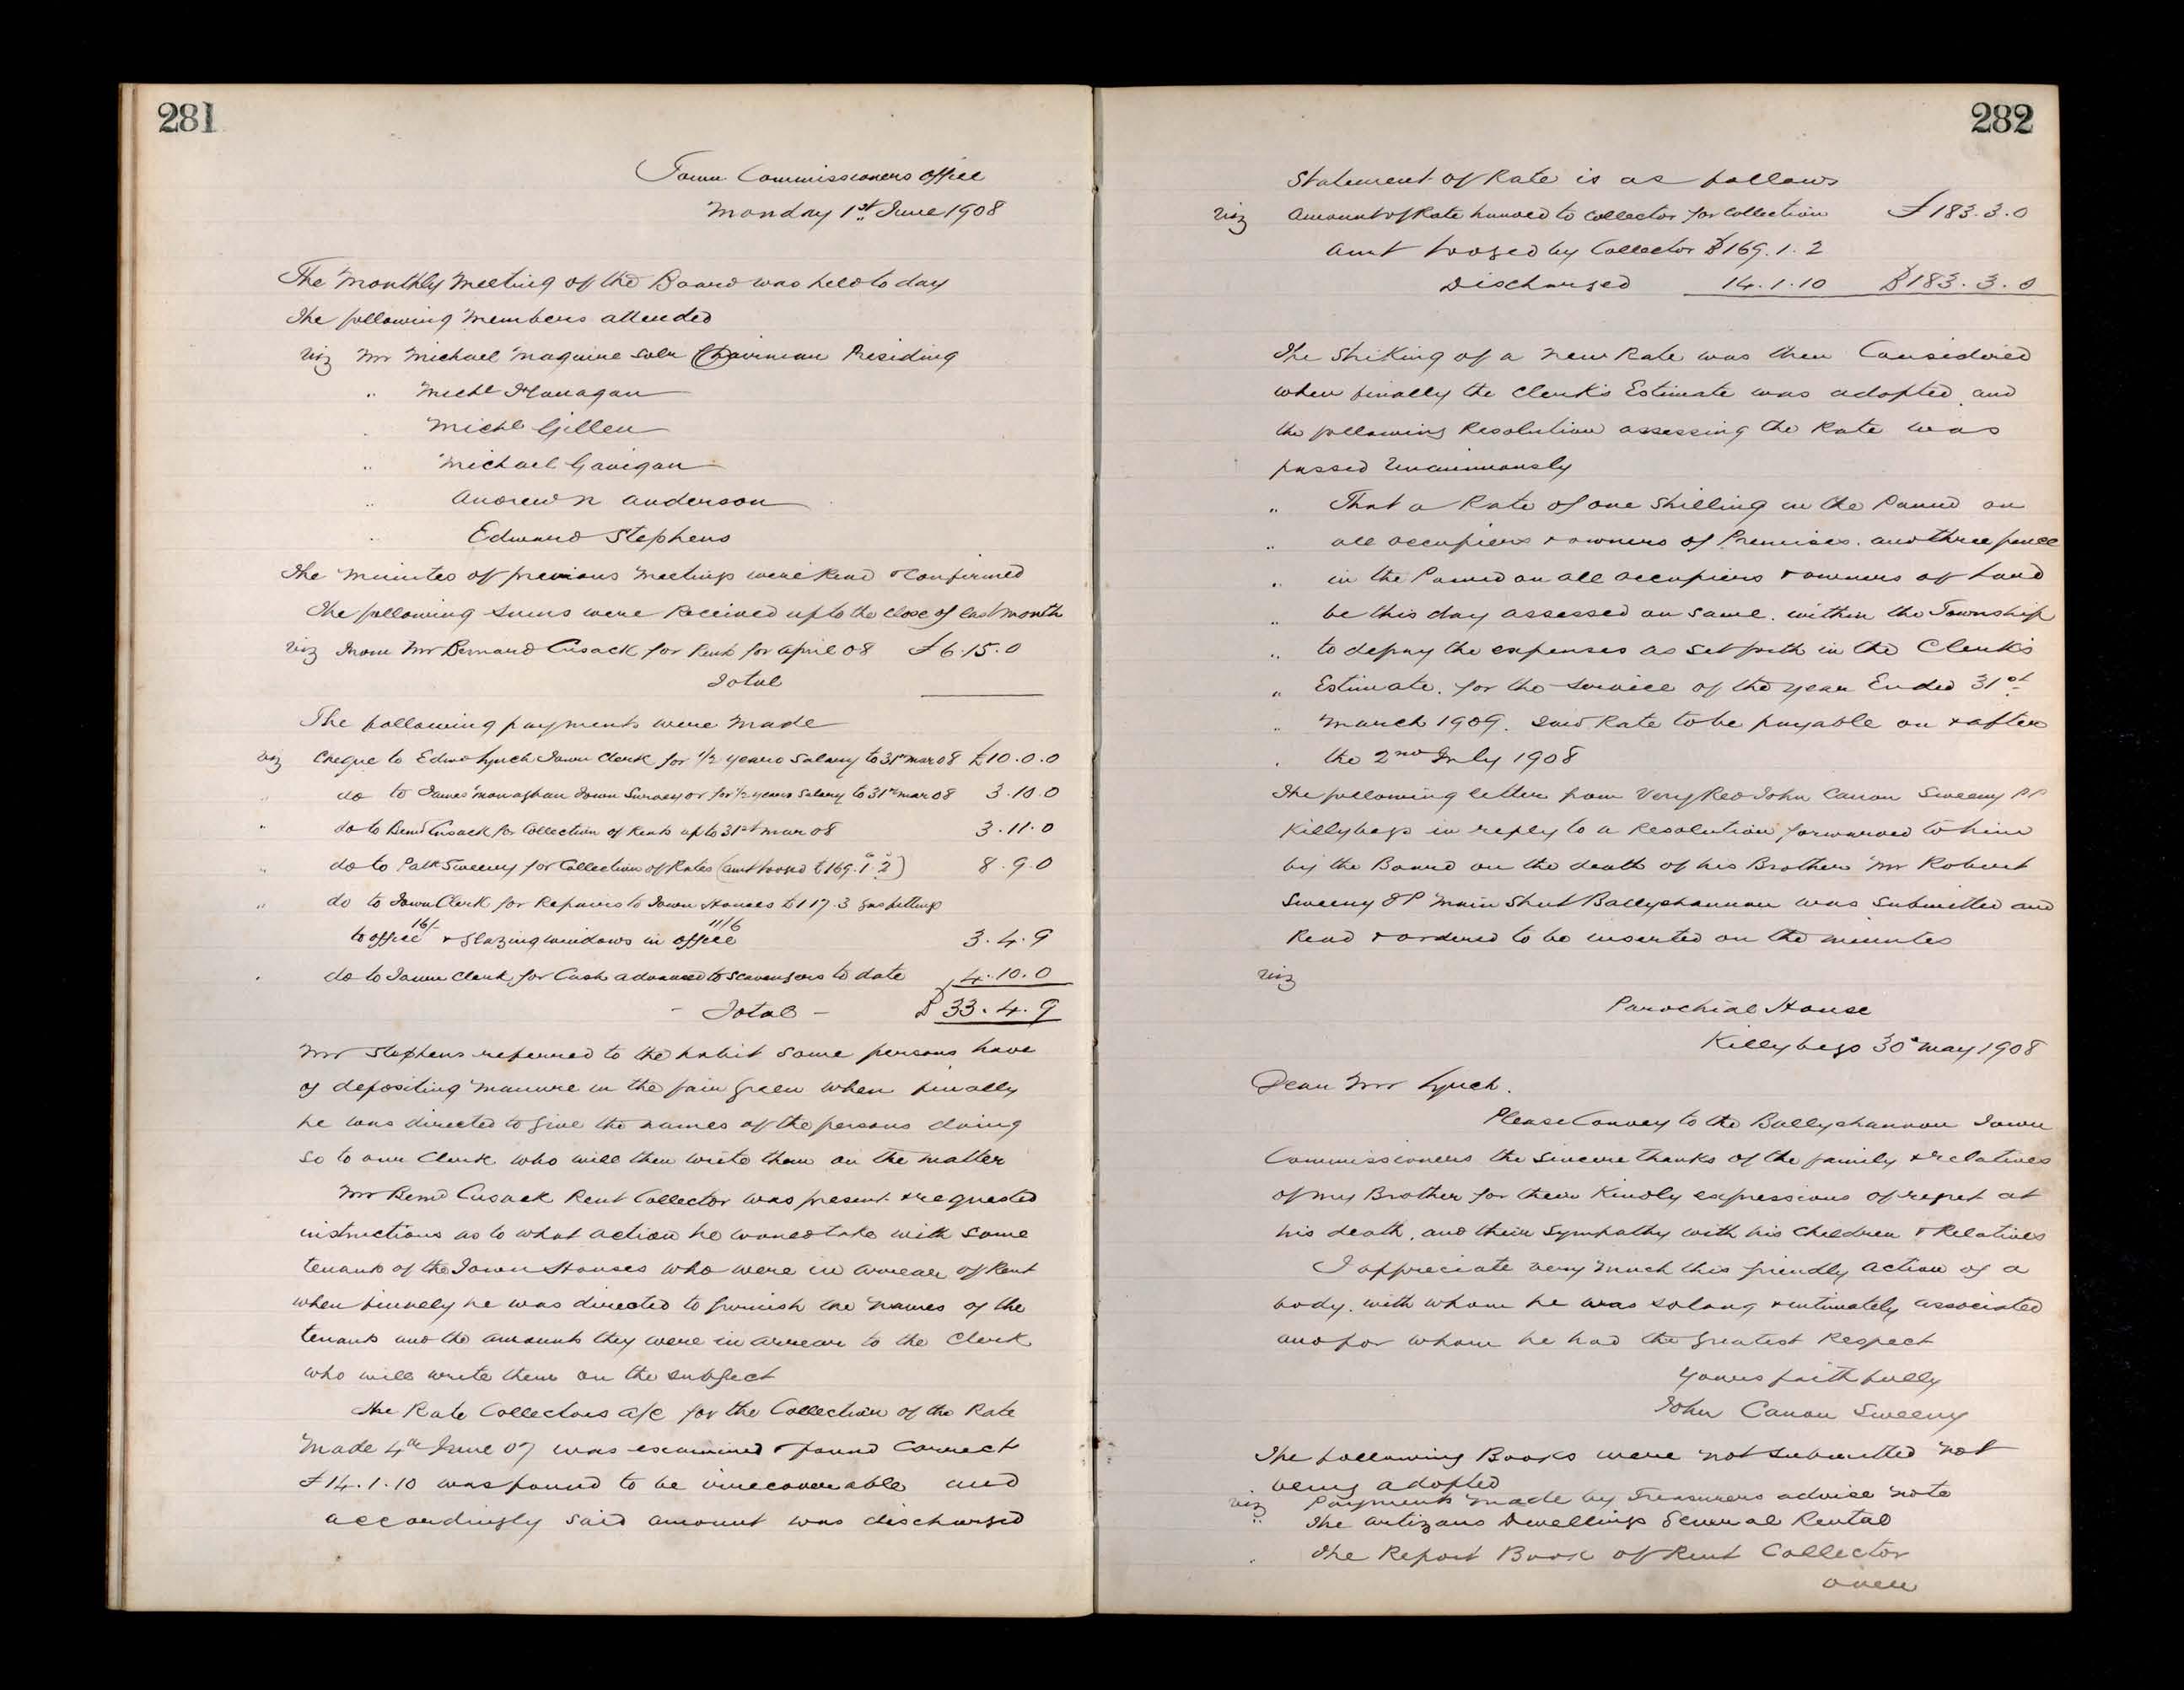 281
Town Commissioners Office
Monday 1st June 1908
The Monthly Meeting of the Board was held to day
The following Members attended
viz Mr Michael Maguire Solr Chairman Presiding
" Michl Flanagan
Michl Gillen
" Michael Gavigan
" Andrew N Anderson
" Edward Stephens
The Minutes of previous Meetings were Read & Confirmed
The following Sums were Received up to the Close of last Month
viz From Mr Bernard Cusack for Rent for April 08 £6.15.0
Total
The following payments were Made
viz Cheque to Edwd Lynch Town Clerk for 1/2 years Salary to 31st Mar 08 £10.0.0
" do to James Monaghan Town Surveyor for 1/2 years Salary to 31st Mar 08 3.10.0
" do to Bernd Cusack for Collection of Rents up to 31st Mar 08 3.11.0
" do to Patk Sweeny for Collection of Rates (amt lodged £169.1.2) 8.9.0
" do to Town Clerk for Repairs to Town Houses £1 17.3 Gas fittings
to office 16/- & Glazing windows in office 11/6 3.4.9
do to Town Clerk for Cash advanced to Scavengers to date 4.10.0
- Total - £33.4.9
Mr Stephens referred to the habit Some persons have
of depositing Manure in the fair Green when finally
he was directed to Give the names of the persons doing
So to our Clerk who will then write them on the Matter
Mr Bernd Cusack Rent Collector was present & requested
instructions as to what action he would take with Some
tenants of the Town Houses who were in arrear of Rent
when finally he was directed to furnish the Names of the
tenants and the amounts they were in arrear to the Clerk
who will write them on the Subject
The Rate Collectors a/c for the Collection of the Rate
Made 4th June 07 was examined & found Correct
£14.1.10 was found to be irrecoverable and
accordingly said amount was discharged
282
Statement of Rate is as follows
viz Amount of Rate handed to Collector for Collection £183.3.0
Amt lodged by Collector £169.1.2
Discharged 14.1.10 £183.3.0
The Striking of a New Rate was then Considered
when finally the Clerk's Estimate was adopted and
the following Resolution assessing the Rate was
passed Unanimously
" That a Rate of one Shilling in the Pound on
" all occupiers & owners of Premises. and three pence
" in the Pound on all occupiers & owners of Land
" be this day assessed on same. within the Township
" to defray the expenses as Set forth in the Clerk's
" Estimate. for the Service of the year Ended 31st
" March 1909. Said Rate to be payable on & after
" the 2nd July 1908
The following letter from Very Rev John Canon Sweeny PP
Killybegs in reply to a Resolution forwarded to him
by the Board on the death of his Brother Mr Robert
Sweeny JP Main Street Ballyshannon was Submitted and
Read & ordered to be inserted on the minutes
viz
Parochial House
Killybegs 30th May 1908
Dear Mr Lynch.
Please Convey to the Ballyshannon Town
Commissioners the Sincere thanks of the family & relatives
of my Brother for their Kindly expressions of regret at
his death, and their Sympathy with his Children & Relatives
I appreciate very Much this friendly action of a
body. with whom he was so long & intimately associated
and for whom he had the Greatest Respect
Yours faithfully
John Canon Sweeny
The following Books were Not Submitted Not
being adopted
viz Payments Made by Treasurers advise Note
" The Artizans Dwellings General Rental
" The Report Book of Rent Collector
over